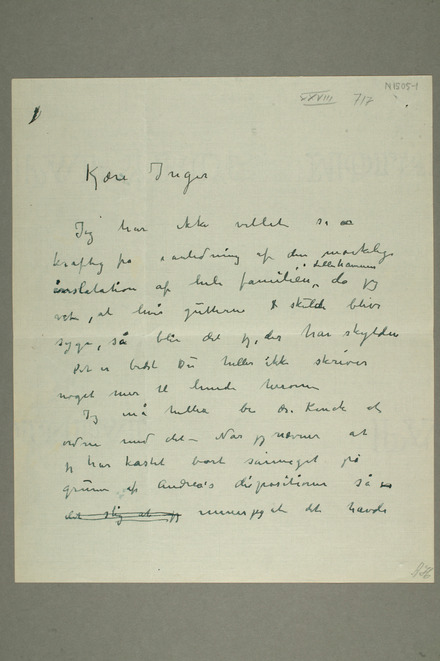 N1505-1
XXVIII 7/7
Kjære Inger
Jeg har ikke villet se
kraftig på i anledning af den mærkelige
installation af hele familien, i Lillehammer da jeg
vet, at hvis gutterne skulde blive
syge, så blir det jeg, der har skylden
Det er bedst Du heller ikke skriver
noget mer til hende herom
Jeg må heller be dr. om at
ordne med det – Når jeg nævner at
jeg har kastet bort såmeget på
grund af Andrea's dispositioner så
det jeg mener jeg at det havde